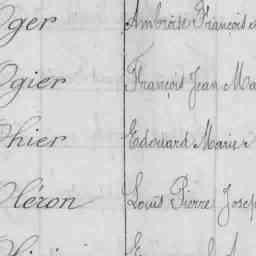 Oger Ambroise François
Ogier François Jean Ma
Ohier Edouard Marie
Oléron Louis Pierre Josep